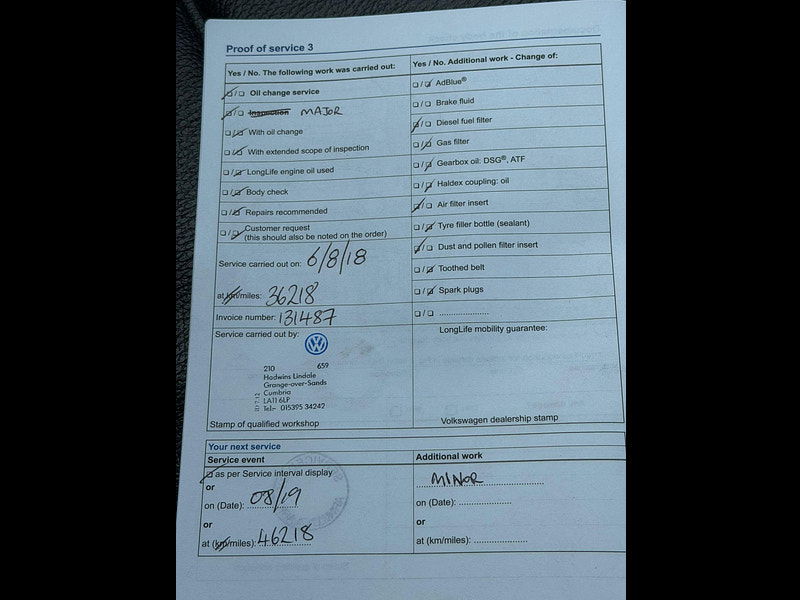 Proof of service 3
Yes / No. The following work was carried out:
Oil change service
Inspection MAJOR
With oil change
With extended scope of inspection
LongLife engine oil used
Body check
Repairs recommended
Customer request
(this should also be noted on the order)
Service carried out on: 6/8/18
at km/miles: 36218
Invoice number: 131487
Service carried out by:
210 659
Hadwins Lindale
Grange-over-Sands
Cumbria
LA11 6LP
Tel:- 015395 34242
Stamp of qualified workshop
Yes / No. Additional work - Change of:
AdBlue®
Brake fluid
Diesel fuel filter
Gas filter
Gearbox oil: DSG®, ATF
Haldex coupling: oil
Air filter insert
Tyre filler bottle (sealant)
Dust and pollen filter insert
Toothed belt
Spark plugs
....................
LongLife mobility guarantee:
Volkswagen dealership stamp
Your next service
Service event
as per Service interval display
or
on (Date): 08/19
or
at (km/miles): 46218
Additional work
MINOR
on (Date): ....................
or
at (km/miles): ....................